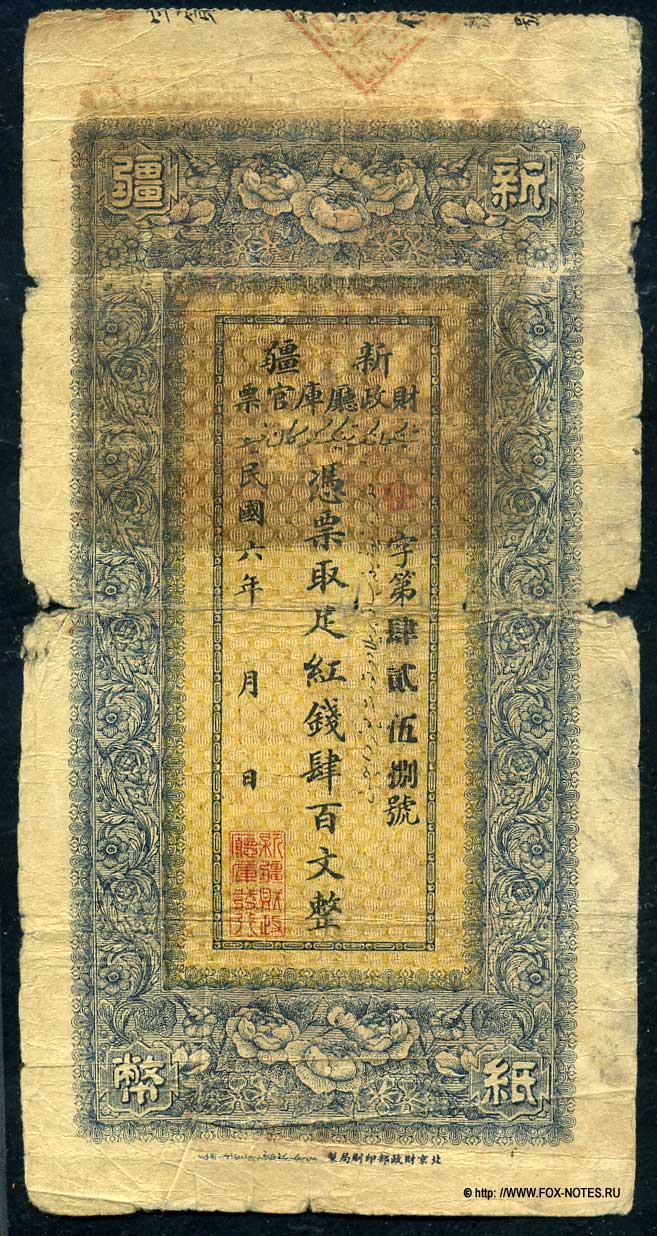 新疆
新疆
財政廳庫官票
字第肆貳伍捌號
憑票取足紅錢肆百文整
民國六年 月 日
新疆財政
廳庫發行
紙幣
北京財政部印刷局製
© http://WWW.FOX-NOTES.RU